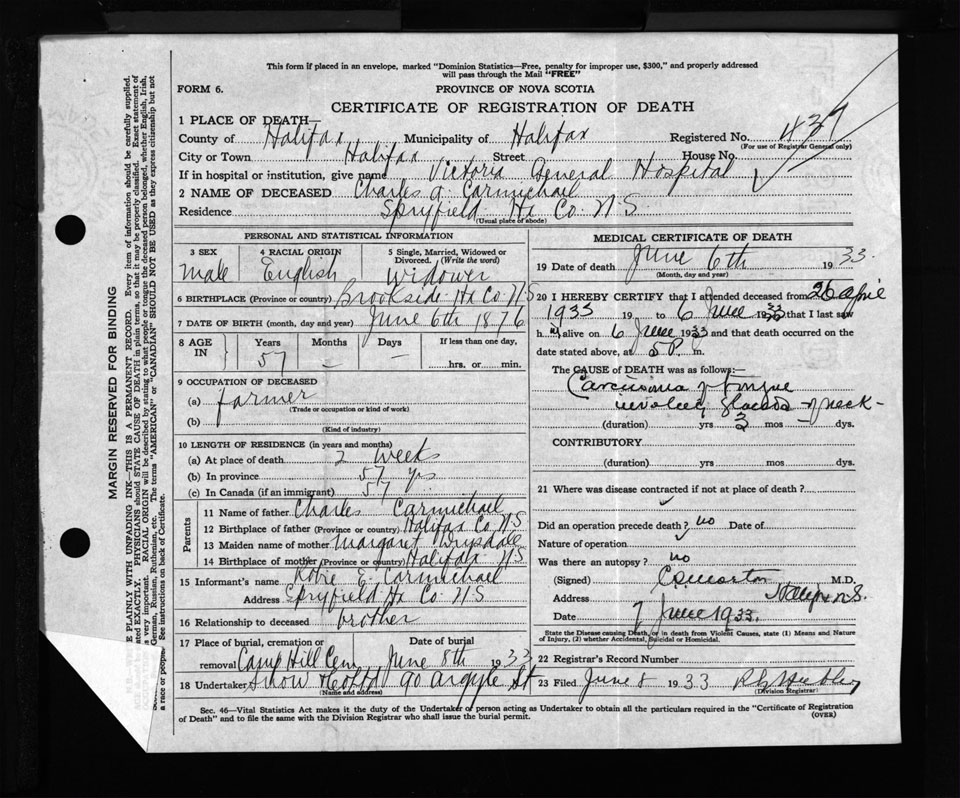 This form if placed in an envelope, marked "Dominion Statistics—Free, penalty for improper use, $300," and properly addressed
will pass through the Mail "FREE"
FORM 6.
PROVINCE OF NOVA SCOTIA
CERTIFICATE OF REGISTRATION OF DEATH
1 PLACE OF DEATH—
County of Halifax Municipality of Halifax Registered No. 437
(For use of Registrar General only)
City or Town Halifax Street House No.
If in hospital or institution, give name Victoria General Hospital
2 NAME OF DECEASED Charles A. Carmichael
Residence Spryfield Hx Co. N S
(Usual place of abode)
PERSONAL AND STATISTICAL INFORMATION
3 SEX 4 RACIAL ORIGIN 5 Single, Married, Widowed or
Divorced. (Write the word)
male English widower
6 BIRTHPLACE (Province or country) Brookside Hx Co. N S
7 DATE OF BIRTH (month, day and year) June 6th 1876
8 AGE IN Years Months Days If less than one day,
57 — — hrs. or min.
9 OCCUPATION OF DECEASED
(a) farmer
(Trade or occupation or kind of work)
(b)
(Kind of industry)
10 LENGTH OF RESIDENCE (in years and months)
(a) At place of death 2 weeks
(b) In province 57 yrs
(c) In Canada (if an immigrant) 57
Parents
11 Name of father Charles Carmichael
12 Birthplace of father (Province or country) Halifax Co N S
13 Maiden name of mother Margaret Drysdale
14 Birthplace of mother (Province or country) Halifax N S
15 Informant's name E. Carmichael
Address Spryfield Hx Co N S
16 Relationship to deceased brother
17 Place of burial, cremation or Date of burial
removal Camp Hill Cem June 8th 1933
18 Undertaker Snow & Co Ltd 90 Argyle St
(Name and address)
MEDICAL CERTIFICATE OF DEATH
19 Date of death June 6th 1933.
(Month, day and year)
20 I HEREBY CERTIFY that I attended deceased from 26 April
1933 19 to 6 June 1933 that I last saw
h m alive on 6 June 1933 and that death occurred on the
date stated above, at 5 P. m.
The CAUSE OF DEATH was as follows:—
Carcinoma of tongue
involving glands of neck -
(duration) yrs 3 mos — dys.
CONTRIBUTORY
(duration) yrs mos dys.
21 Where was disease contracted if not at place of death?
Did an operation precede death? no Date of
Nature of operation
Was there an autopsy? no
(Signed) M.D.
Address Halifax N.S.
Date 7 June 1933.
State the Disease causing Death, or in death from Violent Causes, state (1) Means and Nature
of Injury, (2) whether Accidental, Suicidal or Homicidal.
22 Registrar's Record Number
23 Filed June 8 1933
(Division Registrar)
Sec. 46—Vital Statistics Act makes it the duty of the Undertaker or person acting as Undertaker to obtain all the particulars required in the "Certificate of Registration
of Death" and to file the same with the Division Registrar who shall issue the burial permit.
(OVER)
MARGIN RESERVED FOR BINDING
E PLAINLY WITH UNFADING INK—THIS IS A PERMANENT RECORD. Every item of information should be carefully supplied.
ated EXACTLY. PHYSICIANS should STATE CAUSE OF DEATH in plain terms, so that it may be properly classified. Exact statement of
a very important. RACIAL ORIGIN will be described by stating to what people or tongue the deceased person belonged, whether English, Irish,
German, Russian, Ruthenian, etc. The terms "AMERICAN" or "CANADIAN" SHOULD NOT BE USED as they express citizenship but not
a race or people. See instructions on back of Certificate.